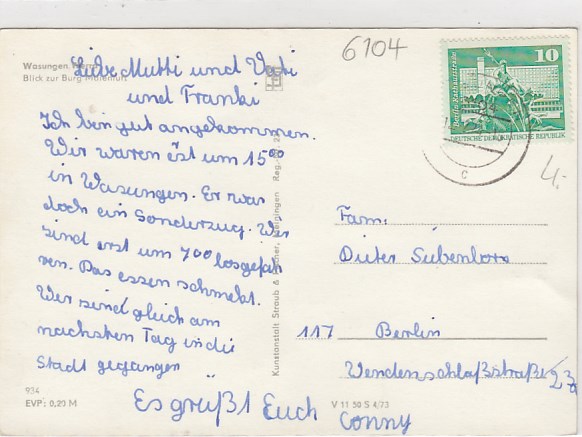 Wasungen
Blick zur Burg Maienluft
6104
10
Berlin-Rathausstraße
DEUTSCHE DEMOKRATISCHE REPUBLIK
C
4,-
Liebe Mutti und Vati
und Franki
Ich bin gut angekommen.
Wir waren erst um 15⁰⁰
in Wasungen. Er war
doch ein Sonderzug. Wir
sind erst um 7⁰⁰ losgefah
ren. Das essen schmekt.
Wir sind gleich am
nächsten Tag in die
Stadt gegangen
Es grüßt Euch Conny
Fam.
Dieter Siebenlors
117 Berlin
Wendenschlaßstraße
Kunstanstalt Straub & Fischer, Meiningen
934
EVP: 0,20 M
V 11 50 S 4/73